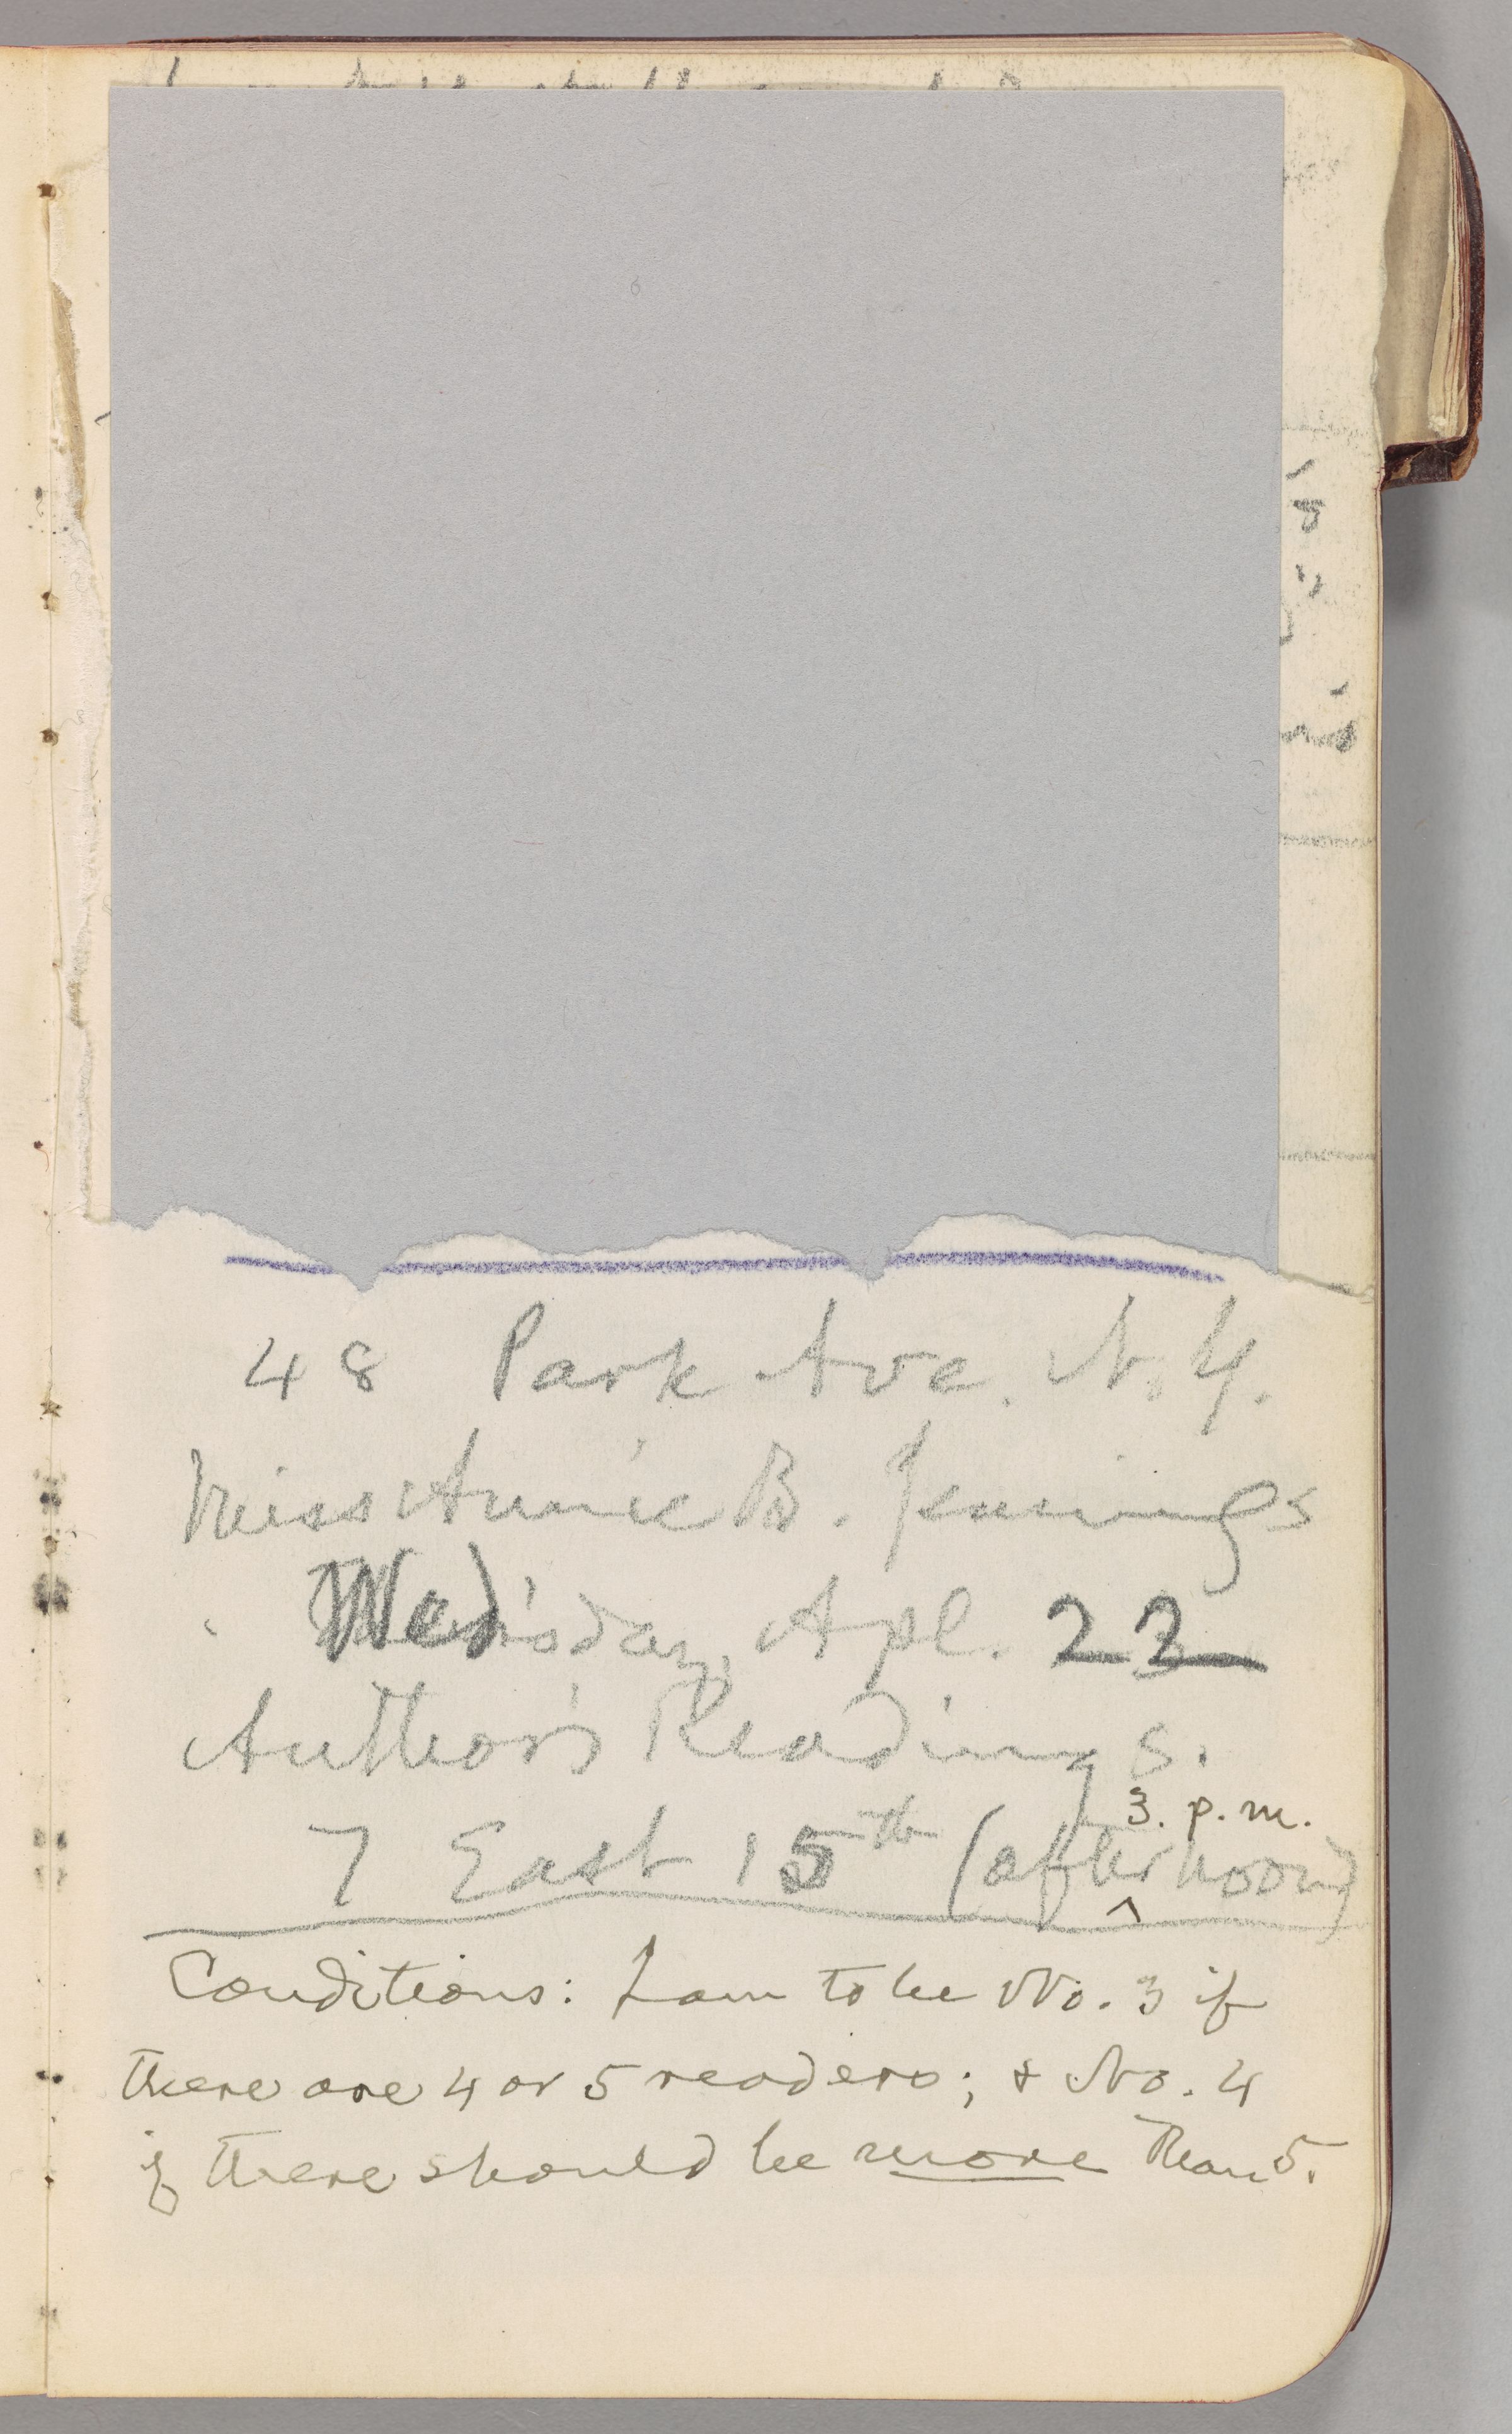 48 Park Ave. N.Y.
Miss Annie B. Jennings
Wed'sday, Apl. 22
Author's Readings.
3. p.m.
7 East 15th (afternoon)
^
Conditions: I am to be No. 3 if
there are 4 or 5 readers; & No. 4
if there should be more than 5.